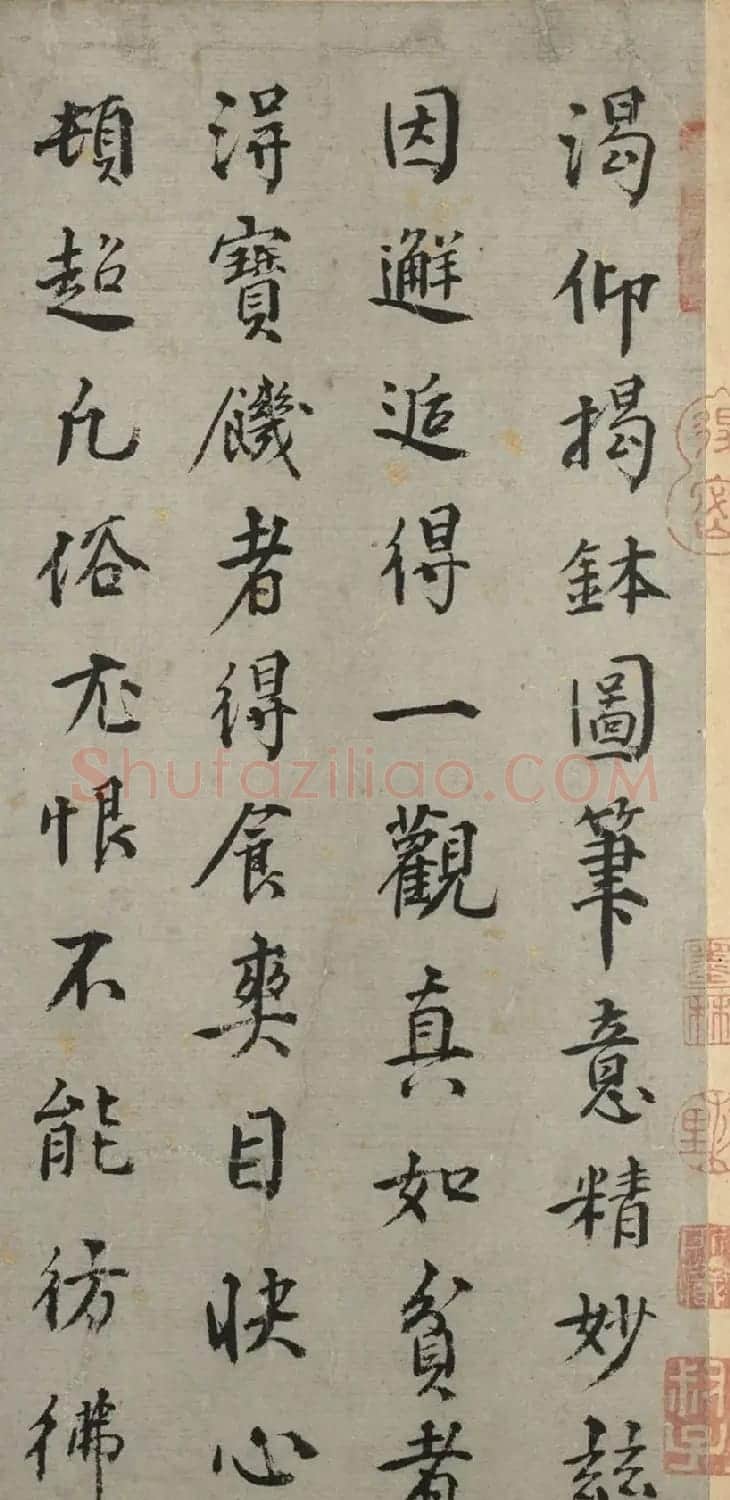 渴仰揭鉢圖筆意精妙兹
因邂逅得一觀真如貧者
得寶饑者得食爽目快心
頓超凡俗尤恨不能彷彿
Shufaziliao.COM